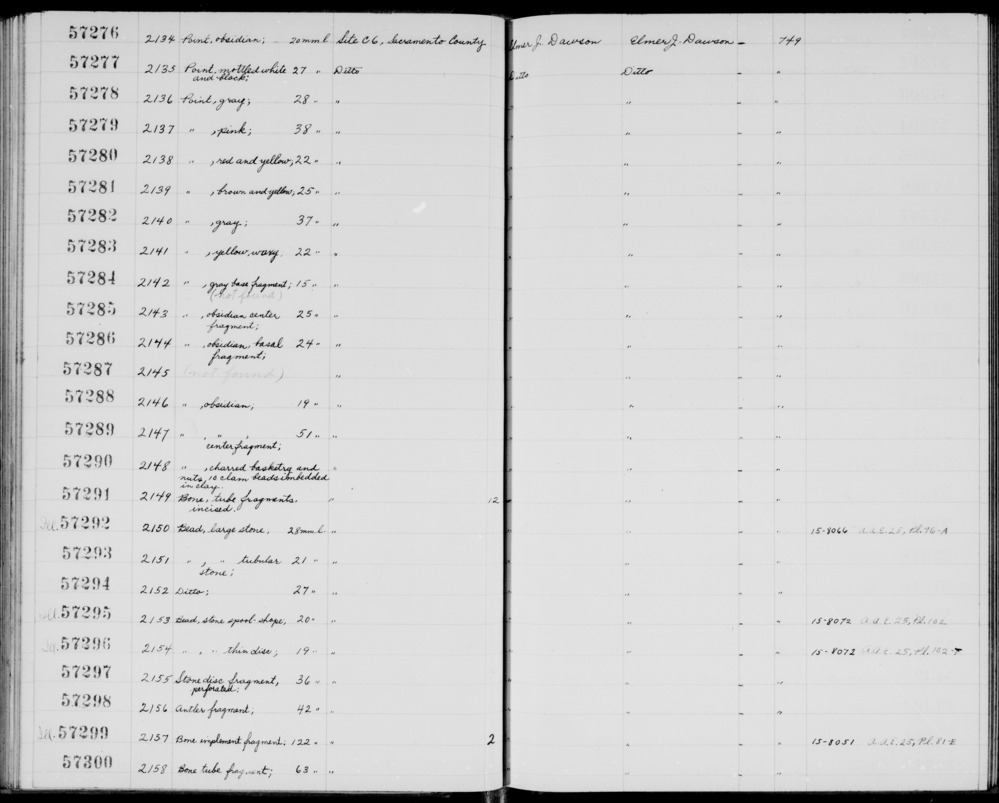 57276 2134 Point, obsidian; 20mm l Site C6, Sacramento County Elmer J. Dawson Elmer J. Dawson - 749
57277 2135 Point, mottled white 27 " Ditto Ditto Ditto - "
and black;
57278 2136 Point, gray; 28 " " " - "
57279 2137 " , pink; 38 " " " - "
57280 2138 " , red and yellow; 22 " " " - "
57281 2139 " , brown and yellow; 25 " " " - "
57282 2140 " , gray; 37 " " " - "
57283 2141 " , yellow, waxy. 22 " " " - "
57284 2142 " , gray base fragment; 15 " " " - "
(not found)
57285 2143 " , obsidian center 25 " " " - "
fragment;
57286 2144 " , obsidian, basal 24 " " " - "
fragment;
57287 2145 (not found) " " - "
57288 2146 " , obsidian; 19 " " " - "
57289 2147 " , " , 51 " " " - "
center fragment;
57290 2148 " , charred basketry and " " - "
nuts, 10 clam beads imbedded
in clay.
57291 2149 Bone, tube fragments, " 12 " - "
incised.
Ill. 57292 2150 Bead, large stone, 28mm l " " - " 15-8066 A.A.E. 25, Pl. 96-A
57293 2151 " , " tubular 21 " " " - "
stone;
57294 2152 Ditto; 27 " " " - "
Ill. 57295 2153 Bead, stone spool-shape, 20 " " " - " 15-8072 A.A.E. 25, Pl. 102
Ill. 57296 2154 " , " thin disc; 19 " " " - " 15-8072 A.A.E. 25, Pl. 102-T
57297 2155 Stone disc fragment, 36 " " " - "
perforated;
57298 2156 Antler fragment; 42 " " " - "
Ill. 57299 2157 Bone implement fragment; 122 " " 2 " - " 15-8051 A.A.E. 25, Pl. 81-E
57300 2158 Bone tube fragment; 63 " " " - "